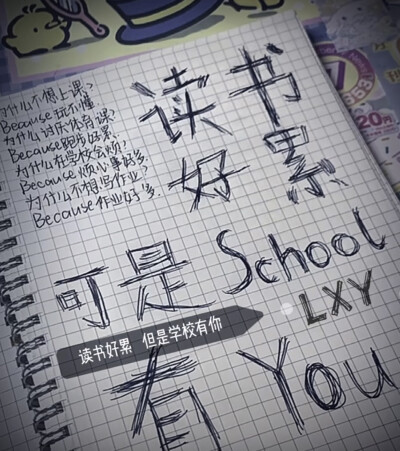 为什么不想上课?
Because 不懂
为什么讨厌体育课?
Because跑步好累.
为什么在学校会烦?
Because 烦心事好多.
为什么不想写作业?
Because作业好多.
读书
好累
可是 School
LXY
读书好累 但是学校有你
有 You
20円